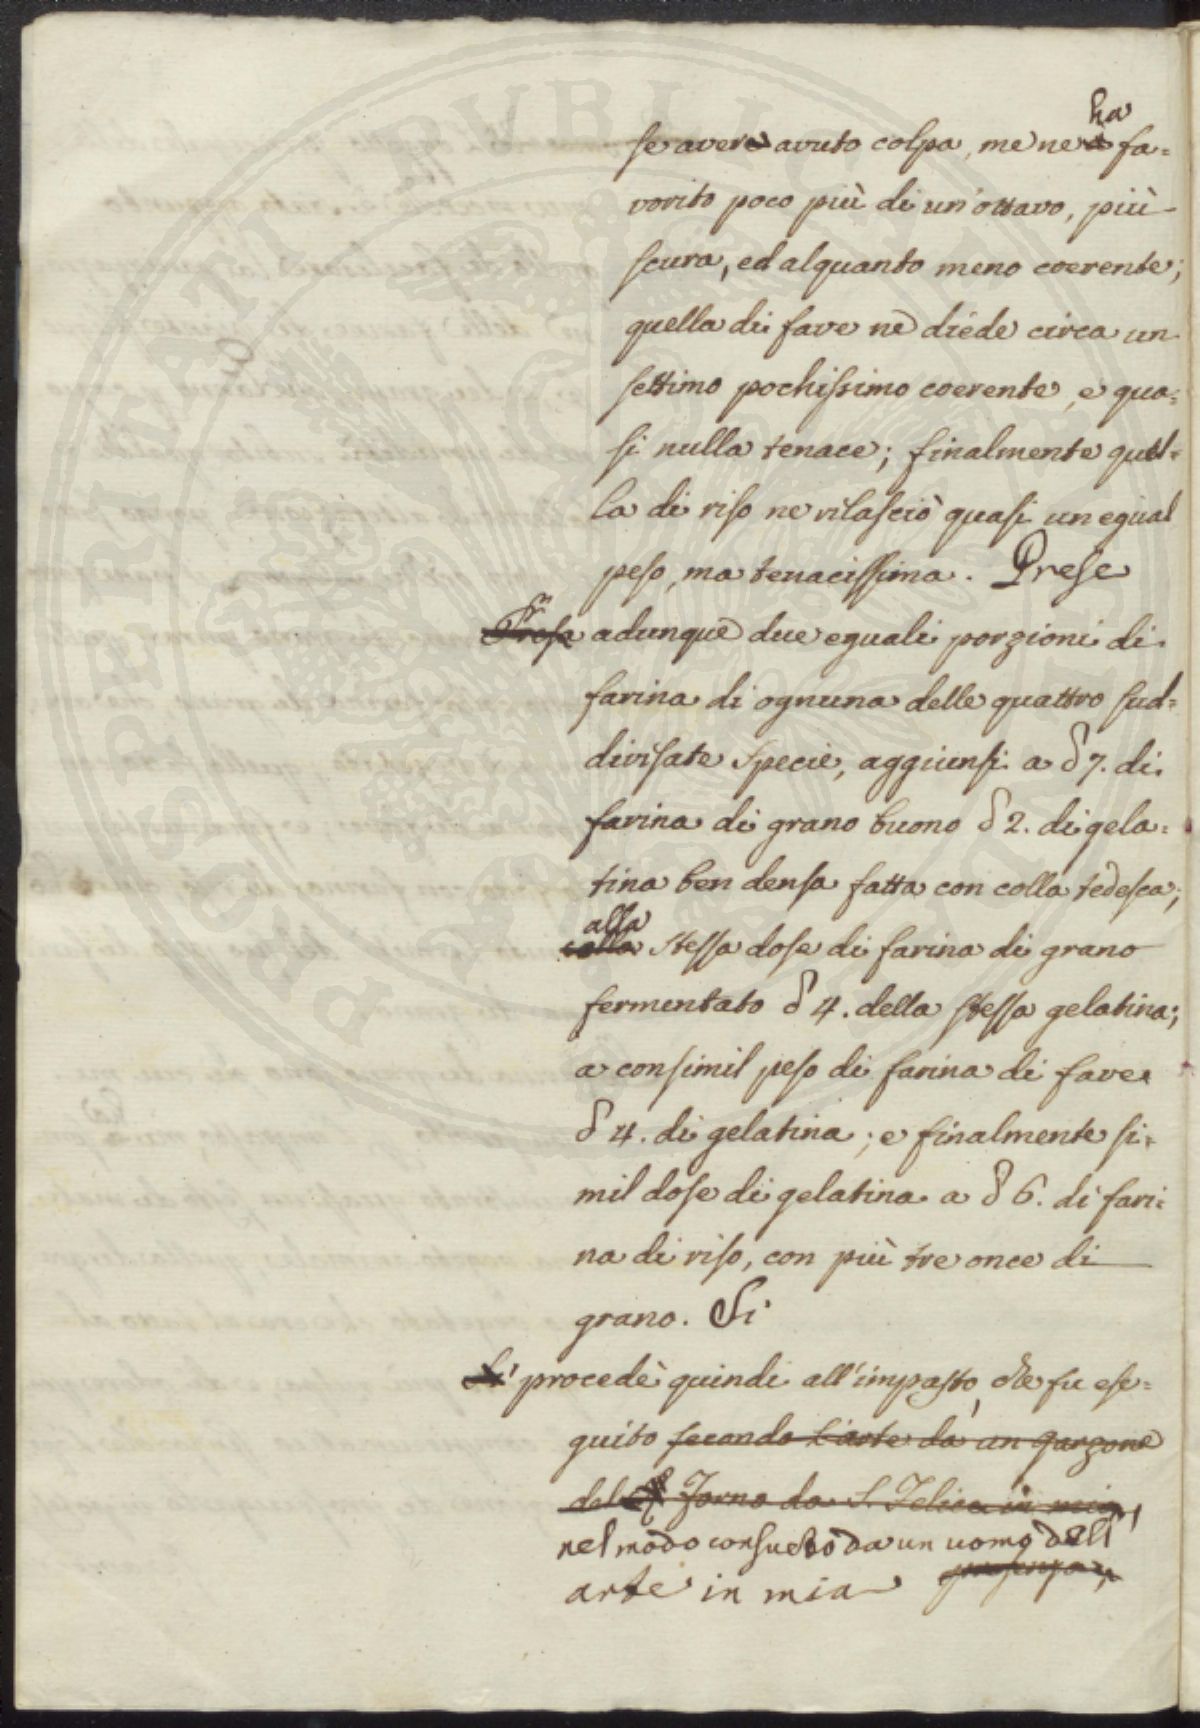 se avere avuto colpa, me ne ha fa=
vorito poco più di un'ottavo, più
scura, ed alquanto meno coerente;
quella di fave ne diede circa un
settimo pochissimo coerente, e qua=
si nulla tenace; finalmente quel=
la di riso ne rilasciò quasi un egual
peso, ma tenacissima. Prese
Prese adunque due eguali porzioni di
farina di ognuna delle quattro sud=
divisate specie, aggiunsi a δ 7. di
farina di grano buono δ 2. di gela=
tina ben densa fatta con colla tedesca;
alla stessa dose di farina di grano
fermentato δ 4. della stessa gelatina;
a consimil peso di farina di fave
δ 4. di gelatina; e finalmente si=
mil dose di gelatina a δ 6. di fari=
na di riso, con più tre once di
grano. Si
Si procedè quindi all'impasto, che fu ese=
guito secondo l'arte da un garzone
del Forno da S. Felice in mia
nel modo consueto da un uomo dell'
arte in mia presenza,
PROSPERITATI PUBLICAE